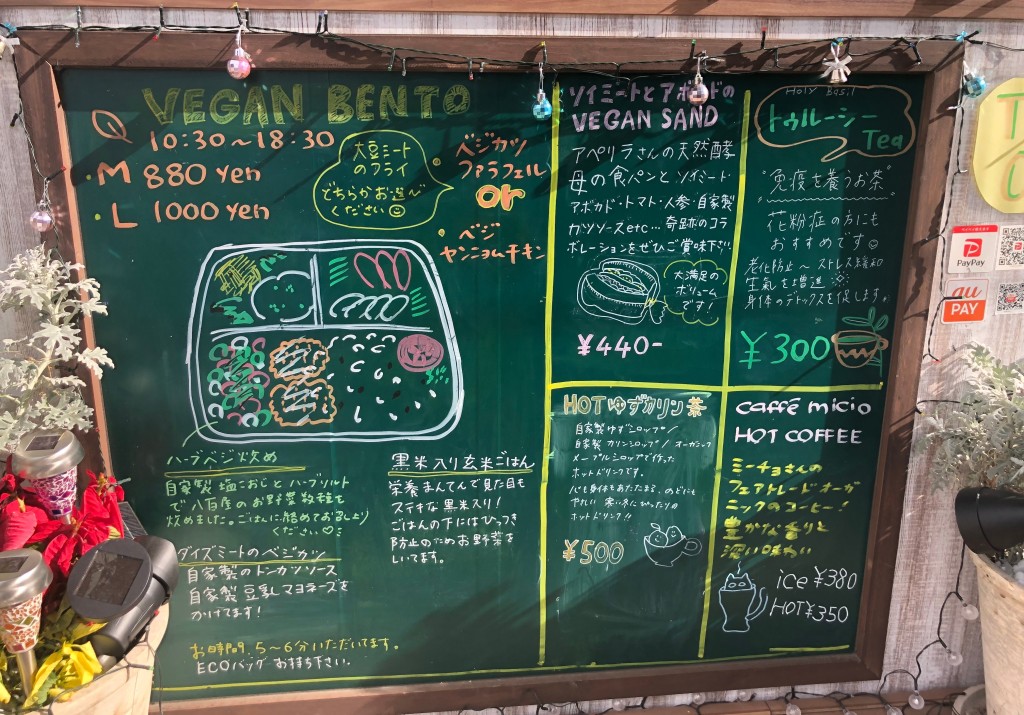 VEGAN BENTO
10:30〜18:30
・M 880 yen
・L 1000 yen
大豆ミート
のフライ
どちらかお選〜
ください
・ベジカツ
ファラフェル
or
・ベジ
ヤンニョムチキン
ハーブベジ炒め
自家製塩こおじとハーブソルト
で八百屋のお野菜数種を
炒めました。ごはんに絡めてお召し上り
ください♡
ダイズミートのベジカツ
自家製のトンカツソース
自家製豆乳マヨネーズを
かけてます!
お時間、5〜6分いただいてます。
ECOバッグお持ち下さい。
黒米入り玄米ごはん
栄養まんてんで見た目も
ステキな黒米入り!
ごはんの下にはひっつき
防止のためお野菜を
しいてます。
ソイミートとアボカドの
VEGAN SAND
アペリラさんの天然酵
母の食パンとソイミート・
アボカド・トマト・人参・自家製
カツソースetc…奇跡のコラ
ボレーションをぜひご賞味下さい。
大満足の
ボリューム
です!
¥440-
Holy Basil
トゥルーシー
Tea
"免疫を養うお茶"
花粉症の方にも
おすすめです
老化防止〜ストレス緩和
生氣を増進
身体のデトックスを促します。
¥300
HOTゆずカリン茶
自家製ゆずシロップ/
自家製カリンシロップ/オーガニック
メープルシロップで作った
ホットドリンクです。
心も身体もあたたまる、のどにも
やさしい
ホットドリンク!!
¥500
caffé micio
HOT COFFEE
ミーチョさんの
フェアトレードオーガ
ニックのコーヒー!
豊かな香りと
深い味わい
ice ¥380
HOT ¥350
PayPay
au
PAY